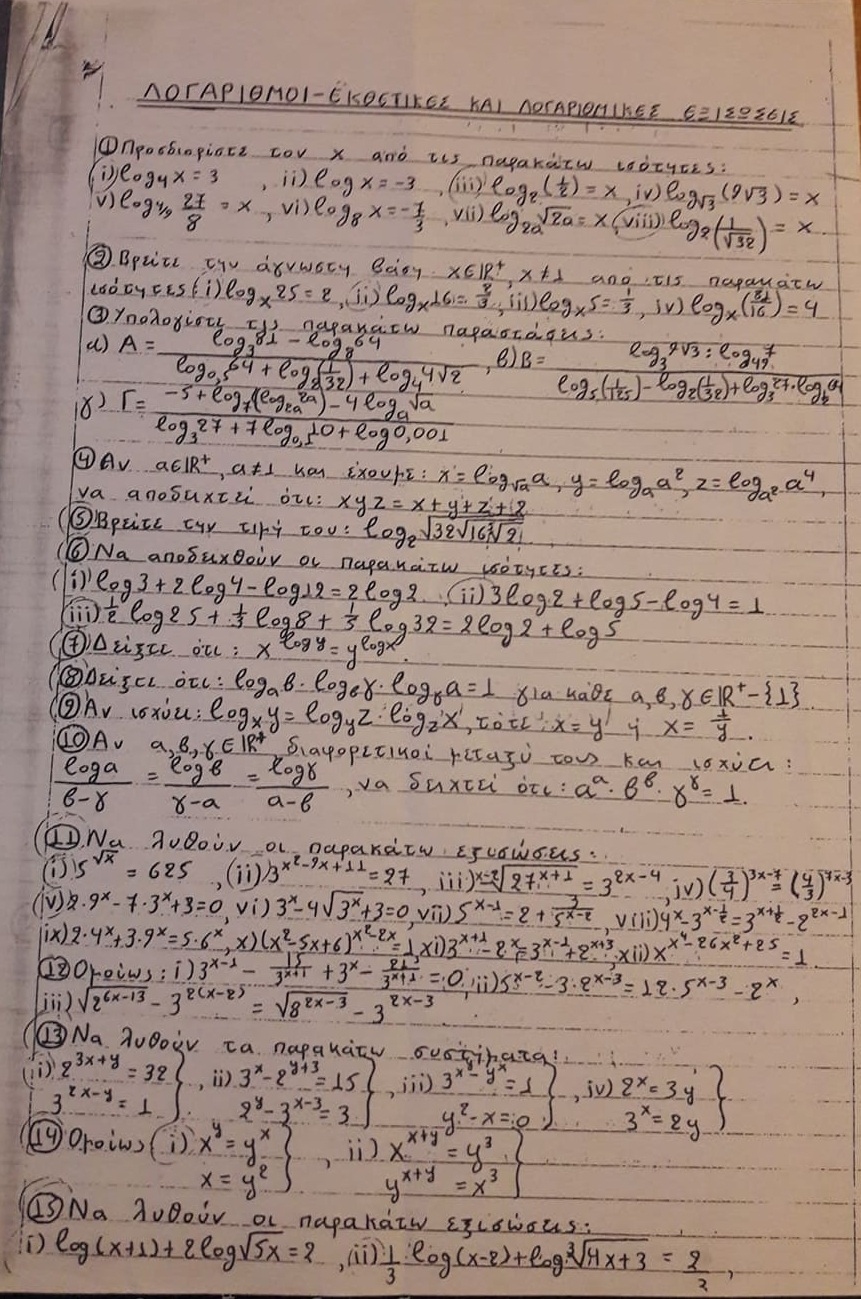 ΛΟΓΑΡΙΘΜΟΙ-ΕΚΘΕΤΙΚΕΣ ΚΑΙ ΛΟΓΑΡΙΘΜΙΚΕΣ ΕΞΙΣΩΣΕΙΣ
① Προσδιορίστε τον x από τις παρακάτω ισότητες:
i) log₄x = 3 , ii) log x = -3 , iii) log₂(1/2) = x , iv) log_√3 (9√3) = x
v) log_4/9 27/8 = x , vi) log₈ x = -7/3 , vii) log_2a √2a = x , viii) log₂(1/√32) = x
② Βρείτε την άγνωστη βάση x∈ℝ⁺, x≠1 από τις παρακάτω
ισότητες: i) logₓ25 = 2 , ii) logₓ16 = 2/3 , iii) logₓ5 = 1/3 , iv) logₓ(81/16) = 4
③ Υπολογίστε τις παρακάτω παραστάσεις:
α) A = (log₃81 - log₈64) / (log_0,5 64 + log₂(1/32) + log₄4√2) , β) B = (log₃9√3 : log₄₉7) / (log₅(1/125) - log₂(1/32) + log₃27·log₂64)
γ) Γ = (-5 + log₇(log_2a 2a) - 4logₐ√a) / (log₃27 + 7log_0,1 10 + log0,001)
④ Αν a∈ℝ⁺, a≠1 και έχουμε: x = log_√a a, y = logₐa², z = log_a² a⁴,
να αποδειχτεί ότι: xyz = x+y+z+2
⑤ Βρείτε την τιμή του: log₂√32√16√2
⑥ Να αποδειχθούν οι παρακάτω ισότητες:
i) log3 + 2log4 - log12 = 2log2 , ii) 3log2 + log5 - log4 = 1
iii) 1/2 log25 + 1/3 log8 + 1/5 log32 = 2log2 + log5
⑦ Δείξτε ότι: x^logy = y^logx.
⑧ Δείξτε ότι: logₐβ · log_βγ · log_γa = 1 για κάθε a, β, γ ∈ ℝ⁺-{1}
⑨ Αν ισχύει: logₓy = log_y z · log_z x, τότε: x = y ή x = 1/y.
⑩ Αν a, β, γ ∈ ℝ⁺, διαφορετικοί μεταξύ τους και ισχύει:
loga/(β-γ) = logβ/(γ-a) = logγ/(a-β) , να δειχτεί ότι: a^a · β^β · γ^γ = 1.
⑪ Να λυθούν οι παρακάτω εξισώσεις:
i) 5^√x = 625 , ii) 3^(x²-9x+11) = 27 , iii) ^(x-2)√27^(x+1) = 3^(2x-4) , iv) (3/4)^(3x-7) = (4/3)^(7x-3)
v) 2·9^x - 7·3^x + 3 = 0, vi) 3^x - 4√3^x + 3 = 0, vii) 5^(x-1) = 2 + 3/5^(x-2) , viii) 4^x - 3^(x-1/2) = 3^(x+1/2) - 2^(2x-1)
ix) 2·4^x + 3·9^x = 5·6^x, x) (x²-5x+6)^(x²-2x) = 1, xi) 3^(x+1) - 2^x = 3^(x-1) + 2^(x+3), xii) x^(x⁴-26x²+25) = 1
⑫ Ομοίως: i) 3^(x-1) - 15/3^(x+1) + 3^x - 21/3^(x+1) = 0, ii) 5^(x-2) - 3·2^(x-3) = 12·5^(x-3) - 2^x ,
iii) √2^(6x-13) - 3^(2(x-2)) = √8^(2x-3) - 3^(2x-3)
⑬ Να λυθούν τα παρακάτω συστήματα:
i) 2^(3x+y) = 32 } , ii) 3^x - 2^(y+3) = 15 } , iii) 3^(x^y-y^x) = 1 } , iv) 2^x = 3y }
3^(2x-y) = 1 } . 2^y - 3^(x-3) = 3 } y² - x = 0 } 3^x = 2y }
⑭ Ομοίως i) x^y = y^x } , ii) x^(x+y) = y³ }
x = y² } y^(x+y) = x³ }
⑮ Να λυθούν οι παρακάτω εξισώσεις:
i) log(x+1) + 2log√5x = 2 , ii) 1/3 log(x-2) + log∛4x+3 = 2/3 ,